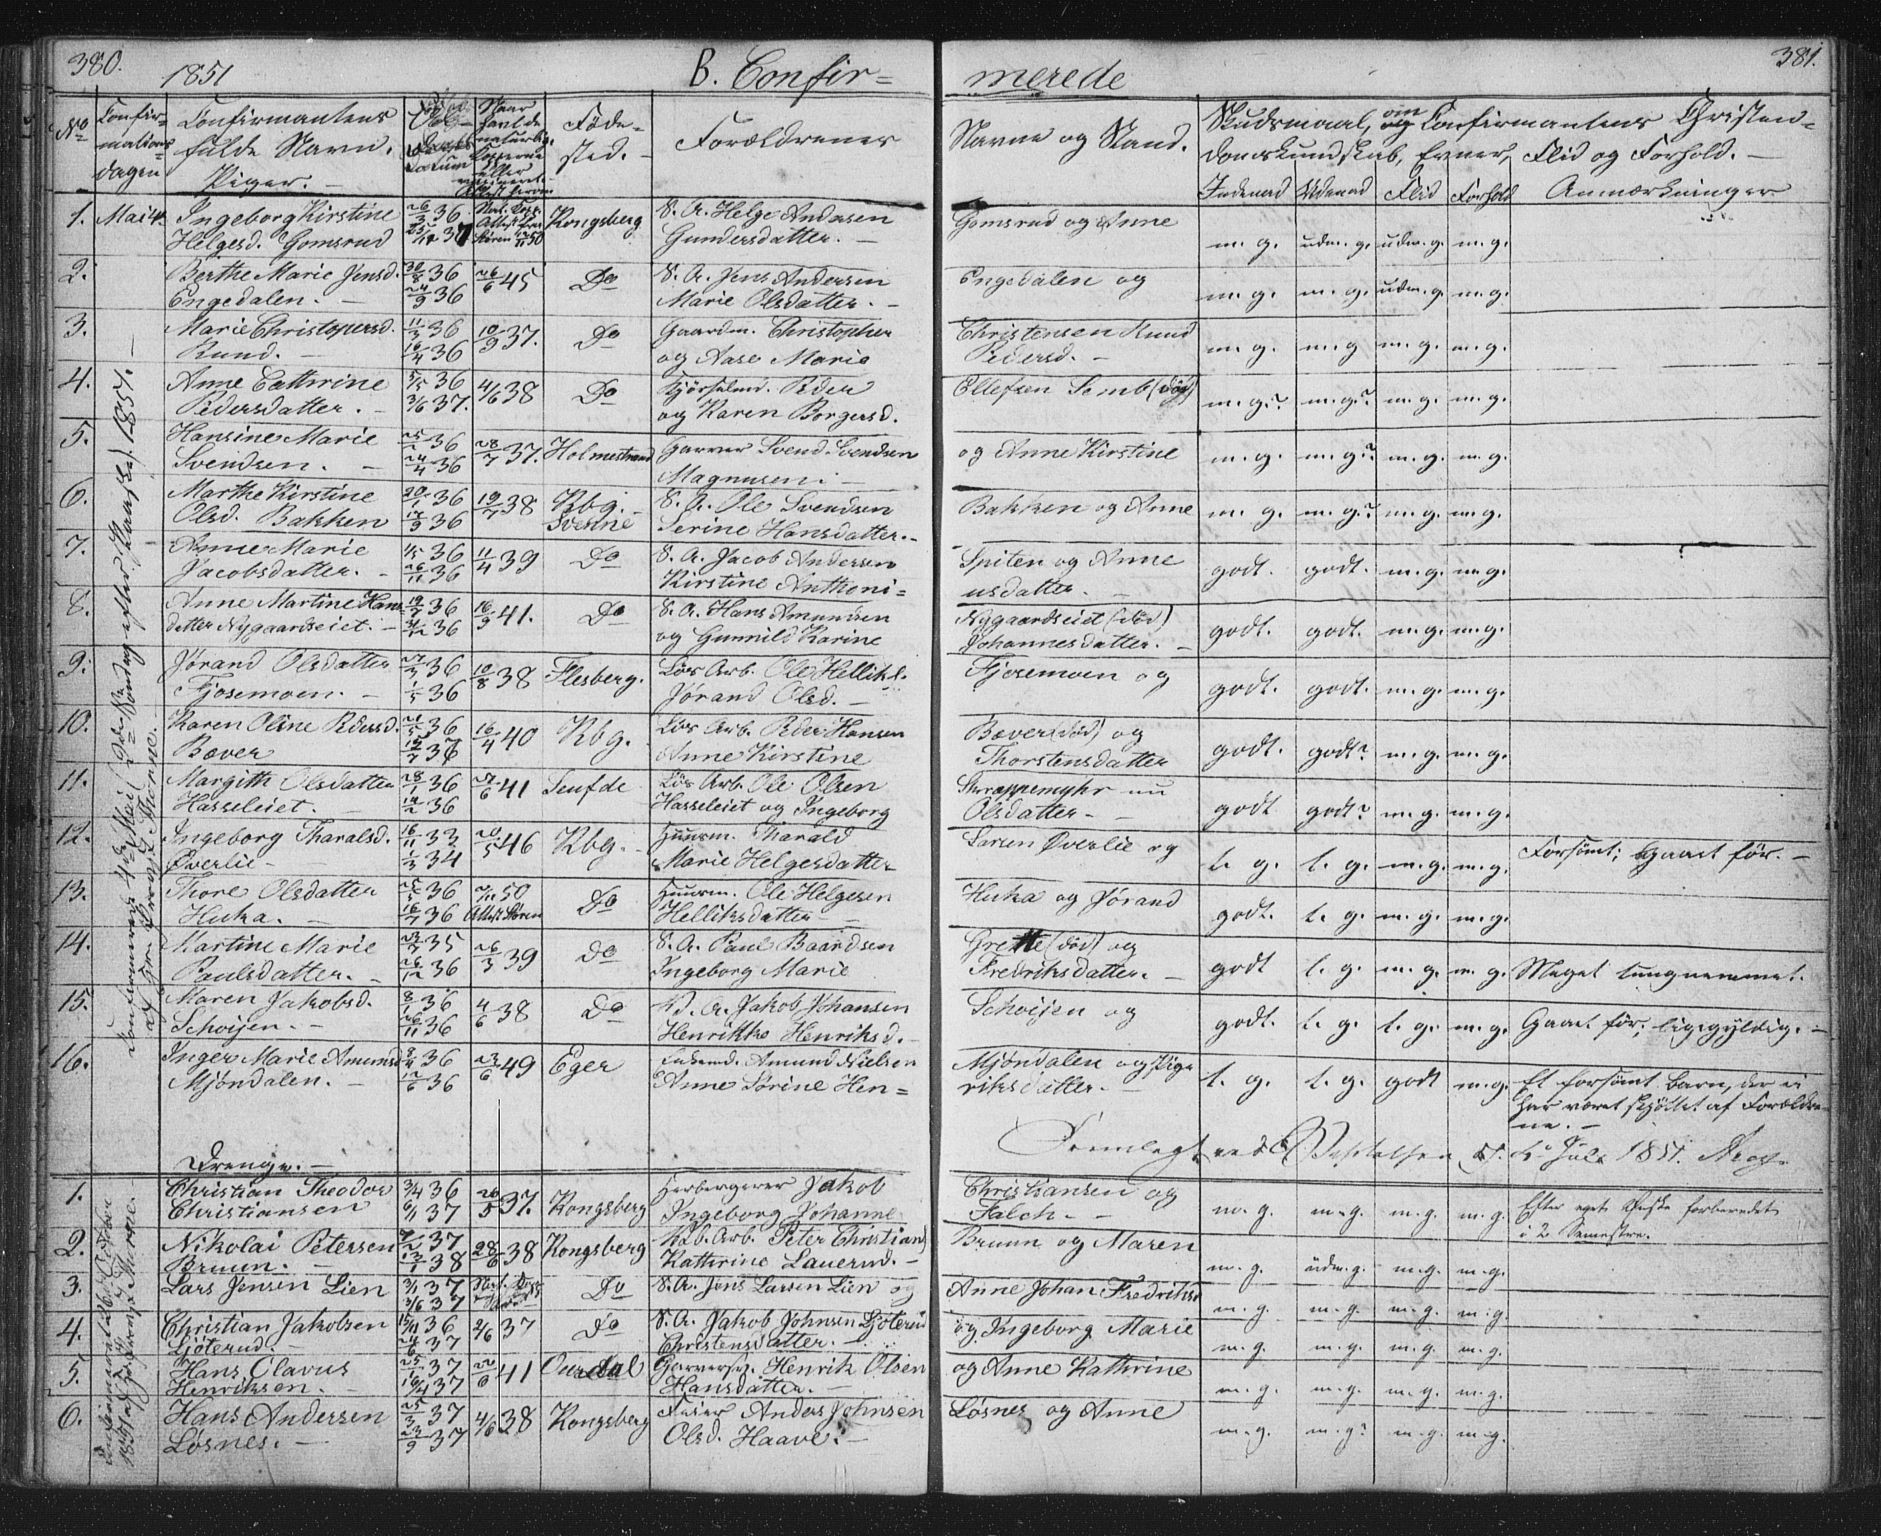 380. 1851 B. Confir= merede 381.
No Confir=mations=dagen Confirmantens fulde Navn. Piger. Føde=sted. Forældrenes Navne og Stand. Skudsmaal, om Confirmantens Christen=
domskundskab, Evner, Flid og Forhold.
Indenad Udenad Flid Forhold Anmærkninger
1. Mai 4. Ingeborg Kirstine 26/3 36 Kongsberg S. A. Helge Andersen Gomsrud og Anne
Helgesd. Gomsrud Gundersdatter. m. g. udm. g. udm. g. m. g.
2. Berthe Marie Jensd. 30/8 36 26/6 45 Do S. A. Jens Andersen Engedalen og
Engedalen. 24/9 36 Marie Olsdatter. m. g. m. g. udm. g. m. g.
3. Marie Christophersd. 11/3 36 10/9 37. Do Gaardm. Christopher Christensen Rund
Rund. 16/4 36 og Aase Marie Pedersd. m. g. m. g m. g. m. g.
4. Anne Cathrine 5/5 36 4/6 38 Do Kjørselsm. Peder Ellefsen Semb (død)
Pedersdatter. 3/6 37. og Karen Borgersd. m. g.? m. g.? m. g. m. g.
5. Hansine Marie 25/2 36 28/7 37. Holmestrand Garver Svend Svendsen og Anne Kirstine
Svendsen. 24/4 36 Magnusen. m. g. m. g.? m. g. m. g.
6. Marthe Kirstine 20/1 36 19/7 38 Kbg. S. A. Ole Svendsen Bakken og Anne
Olsd. Bakken 17/9 36 Svenne Serine Hansdatter. m. g. m. g.? m. g. m. g.
7. Anne Marie 1/5 36 11/4 39 Do S. A. Jacob Andersen Spiten og Anne
Jacobsdatter. 26/11 36 Kirstine Anthoni= usdatter. godt. godt. m. g. m. g.
8. Anne Martine Hans= 19/7 36 16/9 41. Do S. A. Hans Amundsen Nygaardseiet (død)
datter Nygaardseiet. 31/12 36 og Gunnild Karine Johannesdatter. godt. godt. m. g. m. g.
9. Jørand Olsdatter 36 10/8 38 Flesberg. Løs Arb. Ole Helliks. Fjosemoen og
Fjosemoen. 1/5 36 Jørand Olsd. godt. godt. m. g. m. g.
10. Karen Oline Pedersd. 21/5 36 16/4 40 Kbg. Løs Arb. Peder Hansen Bæver (død) og
Bæver 36 Anne Kirstine Thorstensdatter godt. godt? m. g. m. g.
11. Margith Olsdatter 28/1 36 27/6 41 Løs Arb. Ole Olsen Skrappemyhr nu
Hasseleiet. 14/2 36 Hasseleiet og Ingeborg Olsdatter godt godt? m. g. m. g.
12. Ingeborg Tharalsd. 16/11 33 20/5 46 Kbg. Huusm. Tharald Larsen Øverlie og
Øverlie 1/3 34 Marie Helgesdatter t. g. t. g. m. g. m. g. Forsømt; gaaet før.
13. Thore Olsdatter 25/5 36 50 Do Huusm. Ole Helgesen Huka og Jørand
Huka. 16/7 36 Attest Støren Helliksdatter godt. t. g. m. g. m. g.
14. Martine Marie 23/7 35 26/3 39 Do S. A. Paul Baardsen Grette (død) og
Paulsdatter. 26/12 36 Ingeborg Marie Fredriksdatter. godt t. g. m. g. m. g. Meget tungnemmet.
15. Maren Jakobsd. 8/1 36 4/6 38 Do V. A. Jakob Johansen Schoijen og
Schoijen. 26/11 36 Henrikke Henriksd. godt. t. g. t. g. m. g. Gaaet før; ligegyldig.
16. Inger Marie Amundsd 36 23/6 49 Eger Amund Nielsen Mjøndalen og Pige
Mjøndalen. 12/6 36 Anne Sørine Hen= riksdatter t. g. t. g. godt m. g. Et forsømt Barn, der ei
har været skjøttet af Forældre=
ne.
Confirmerede 4de Mai (2den Søndag efter Paaske) 1851. af Hr. Provst Thorne.
Fremlagt ved Visitatsen d. Juli 1851.
Drenge.
1. Christian Theodor 3/4 36 26/5 37. Kongsberg Herbergerer Jakob Christiansen og
Christiansen 6/1 37 Ingeborg Johanne Falch. m. g. m. g. m. g. m. g. Efter eget Ønske forberedet
i 2 Semestre.
2. Nikolai Petersen 37 28/6 38 Kongsberg Kb. Arb. Peter Christian) Bruun og Maren
Bruun. 13/1 38 Kathrine Lauerud. m. g. udm. g. m. g. m. g.
3. Lars Jensen Lien 3/1 37 Do S. A. Jens Larsen Lien og Anne Johan Fredriksd
3/6 37 m. g. m. g. m. g. m. g.
4. Christian Jakobsen 36 2/6 37 Do S. A. Jakob Johnsen Ljøterud og Ingeborg Marie
Ljøterud. 37 Christensdatter. m. g. m. g. m. g. m. g.
5. Hans Olavus 25/2 37 22/6 41 Ourdal Garversv. Henrik Olsen og Anne Kathrine
Henriksen. 16/4 37 Hansdatter. m. g. m. g. m. g. m. g.
6. Hans Andersen 25/3 37 4/6 38 Kongsberg Feier Anders Johnsen Løsnes og Anne
Løsnes. 23/9 37 Olsd. Haave. m. g. m. g? m. g. m. g.